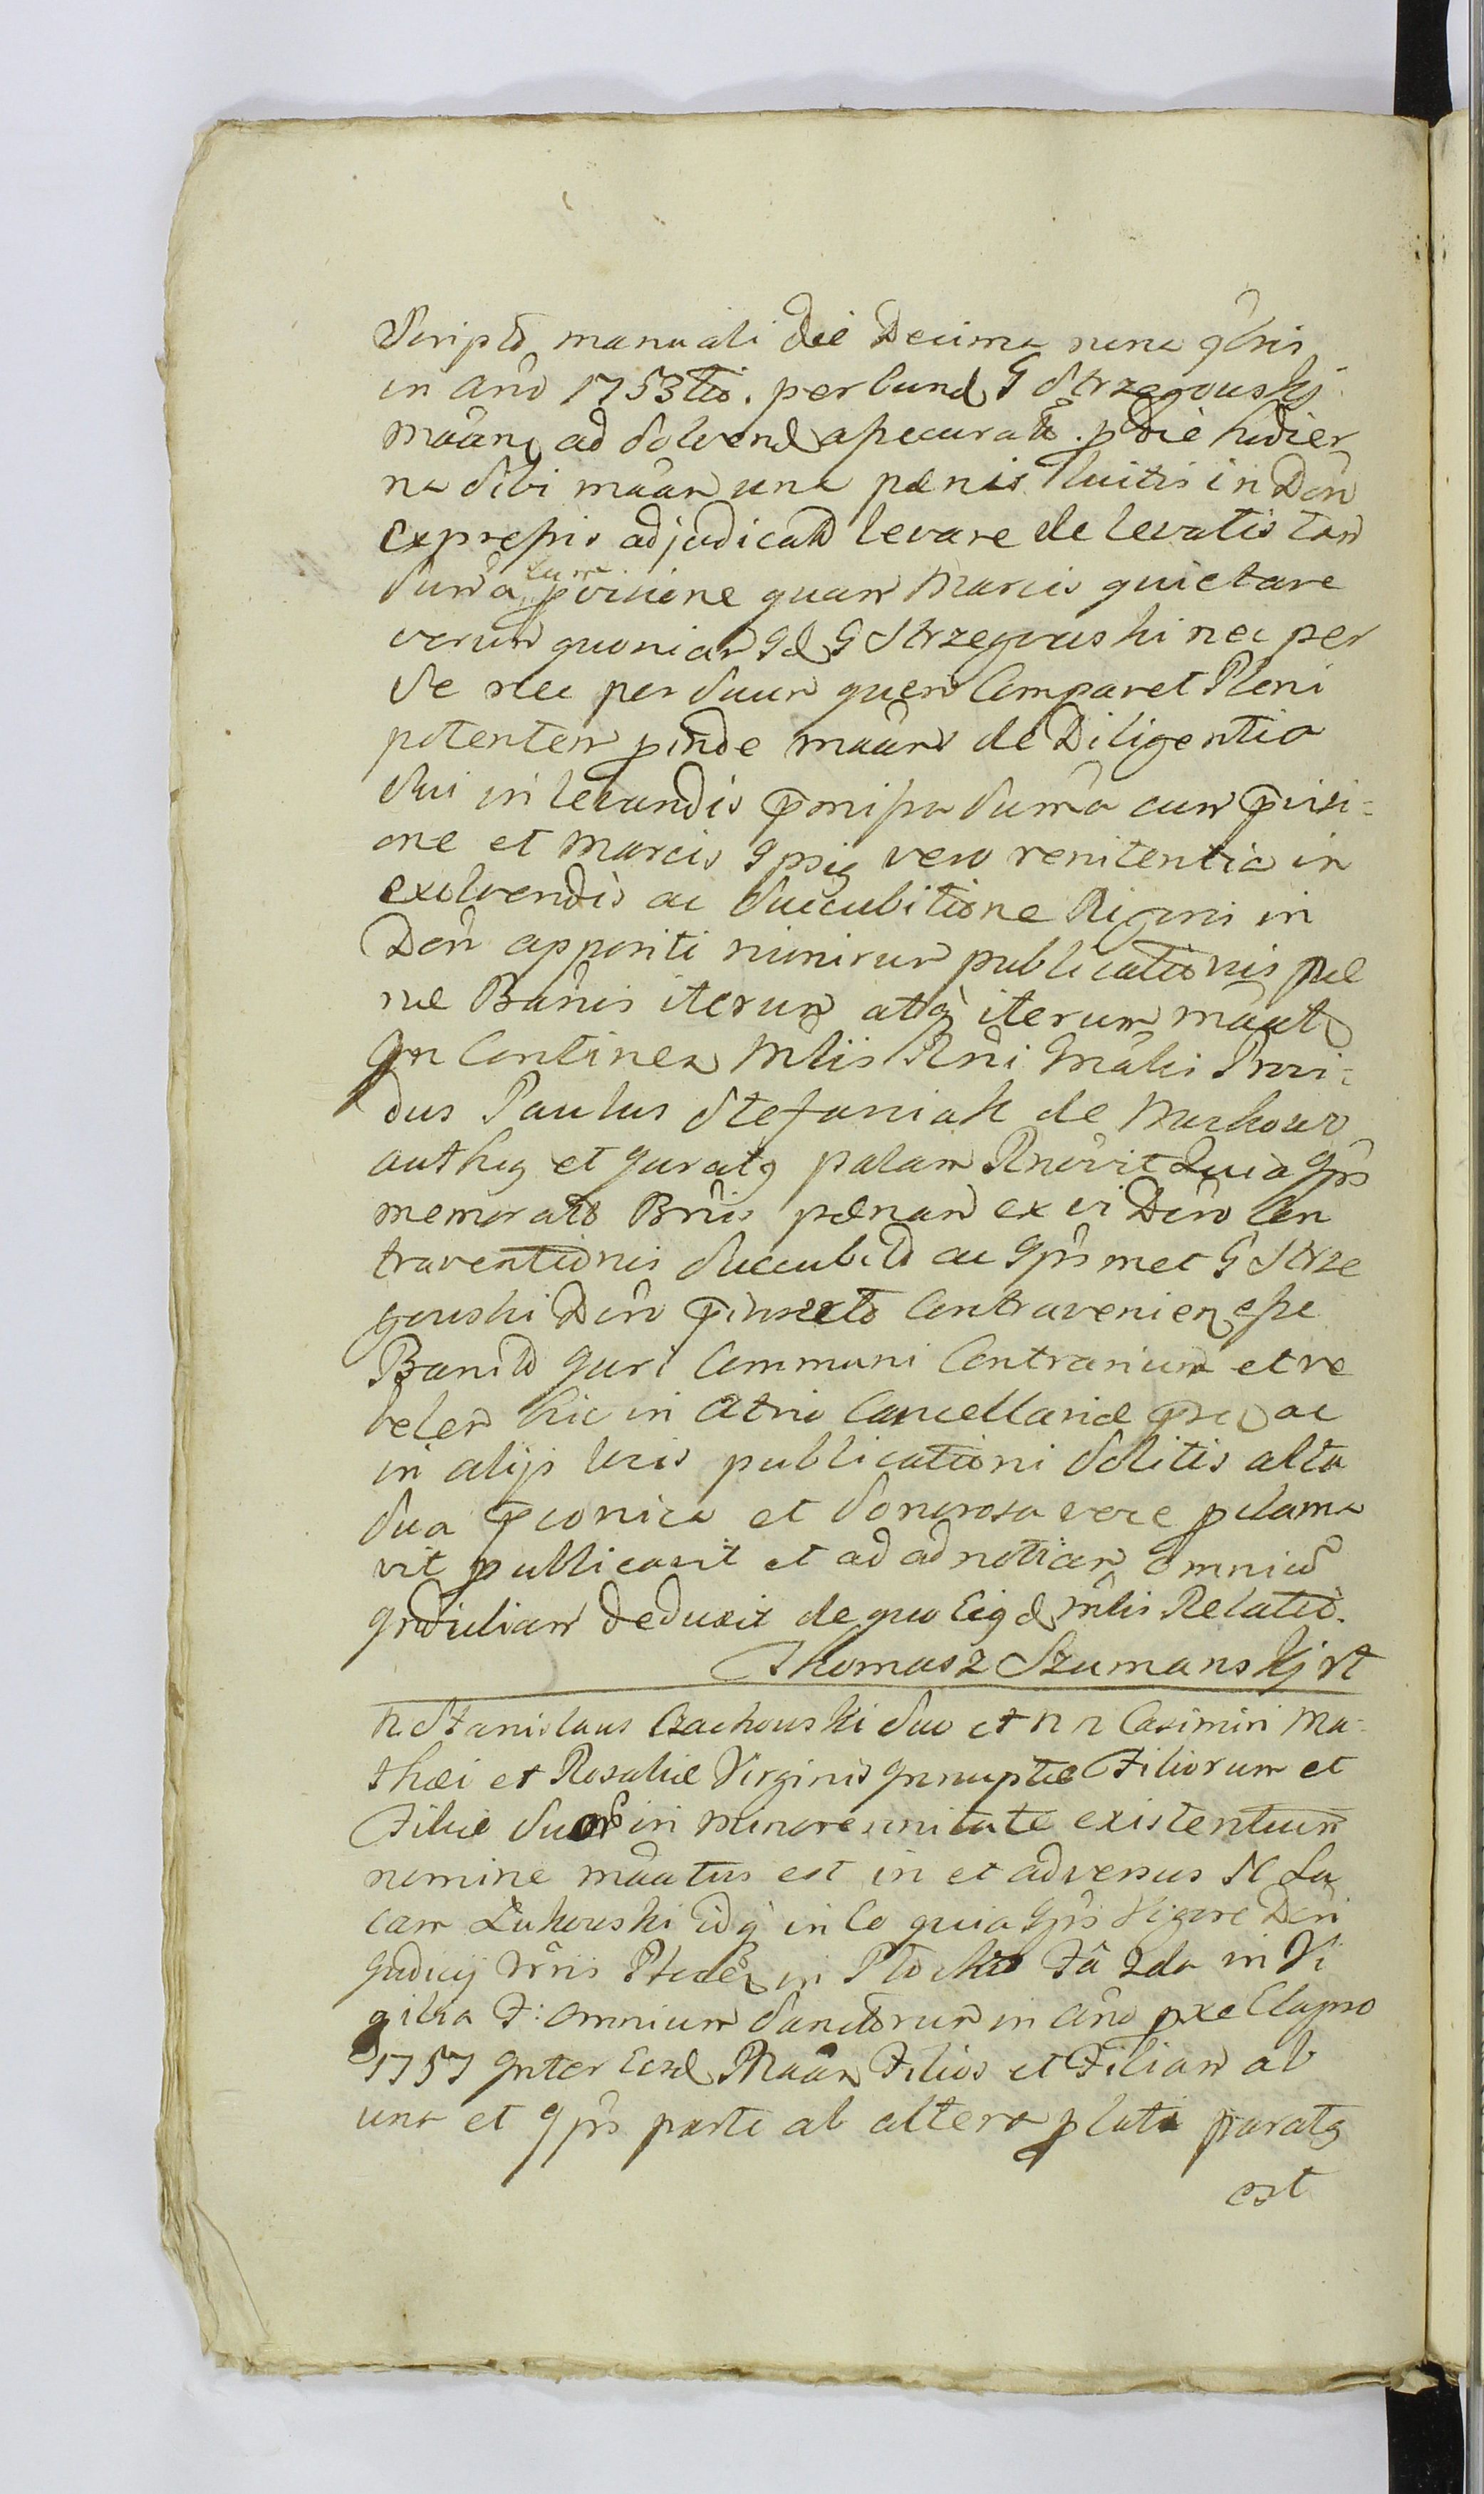 Scripto manuali die Decima nona 9bris
in Año 1753tio. per eund G Strzegowskį
mãan ad solvend assecurato. p die hodier
na sibi mãan una pænis luitis in Dõn
expressis adjudicatã levare de levatis tan
suma cum pvisione quam Marcis quietare
verum quoniam Id G Strzegowski nec per
se nec per suum quem Comparet Pleni
potentem pinde mãans de Diligentia
sui in levandis pmissa suma cum pvisi-
one et Marcis Ipsiq vero renitentia in
exolvendis ac succubitione Rigoris in
Dõn appositi nimirum publicationis pæ
næ Bãnis iterum atq iterum mãat
In Continen Mlis Rñi Gñalis Provi-
dus Paulus Stefaniak de
authq et Juratq palam Rnovit Quia Ips
memorato Bñis pænam ex vi Dõno Con
traventionis succubito ac Ips met G Strze
gowski Dõno pinserto Contravenien esse
Banito Juri Communi Contrarium et re
belem hic in Atrio Cancellariæ psei ac
in alijs locis publicationi solitis alta
sua pconica et sonorosa voce pclama
vit publicavit et ad ad notiam omniũ
Induliam deduxit de quo Eiq d Mlis Relatio.
Thomasz Szumanskį rt
N. Stanislaus Czachowski suo et N N Casimiri Ma-
thæi et Rosaliæ Virginis Innuptæ Filiorum et
Filiæ suor in minorennitate existentium
nomine mãatus est in et adversus N Lu
cam Łukowski idq in Eo quia Ips Vigore Dõni
Judicij Trñis Plocen in Plocko Fã 2da in Vi
gilia F: Omnium Sanctorum in Año pxe Elapso
1757 Inter Eosd Mãan Filios et Filiam ab
una et Ips parte ab altera plati paratq
est